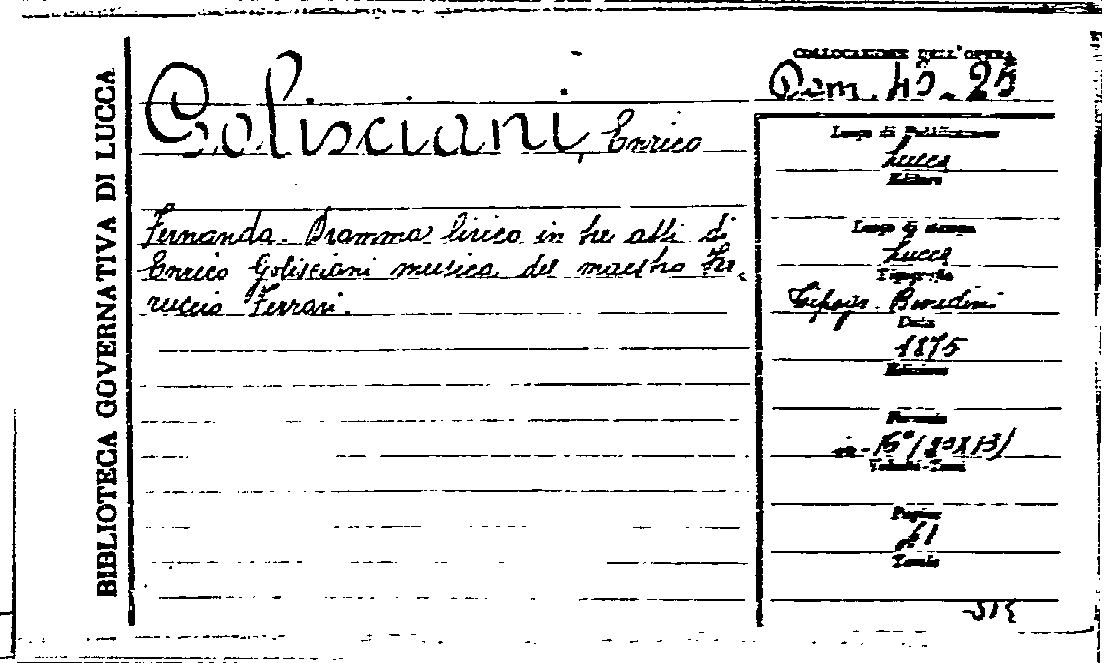 BIBLIOTECA GOVERNATIVA DI LUCCA
Golisciani, Enrico
Fernanda. Dramma lirico in tre atti di
Enrico Golisciani musica del maestro Fer-
ruccio Ferrari.
COLLOCAZIONE DELL'OPERA
Dom. 45. 25
Luogo di Pubblicazione
Lucca
Editore
Luogo di stampa
Lucca
Tipografia
Tipogr. Benedini
Data
1875
Edizione
Formato
in-16° (20x13)
Volumi-Tomi
Pagine
41
Tavole